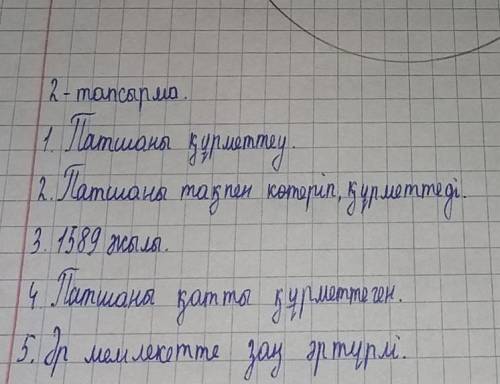 2-тапсырма.
1. Патшаны құрметтеу.
2. Патшаны тақпен көтеріп, құрметтеді.
3. 1589 жылы.
4. Патшаны қатты құрметтеген.
5. Әр мемлекетте заң әртүрлі.